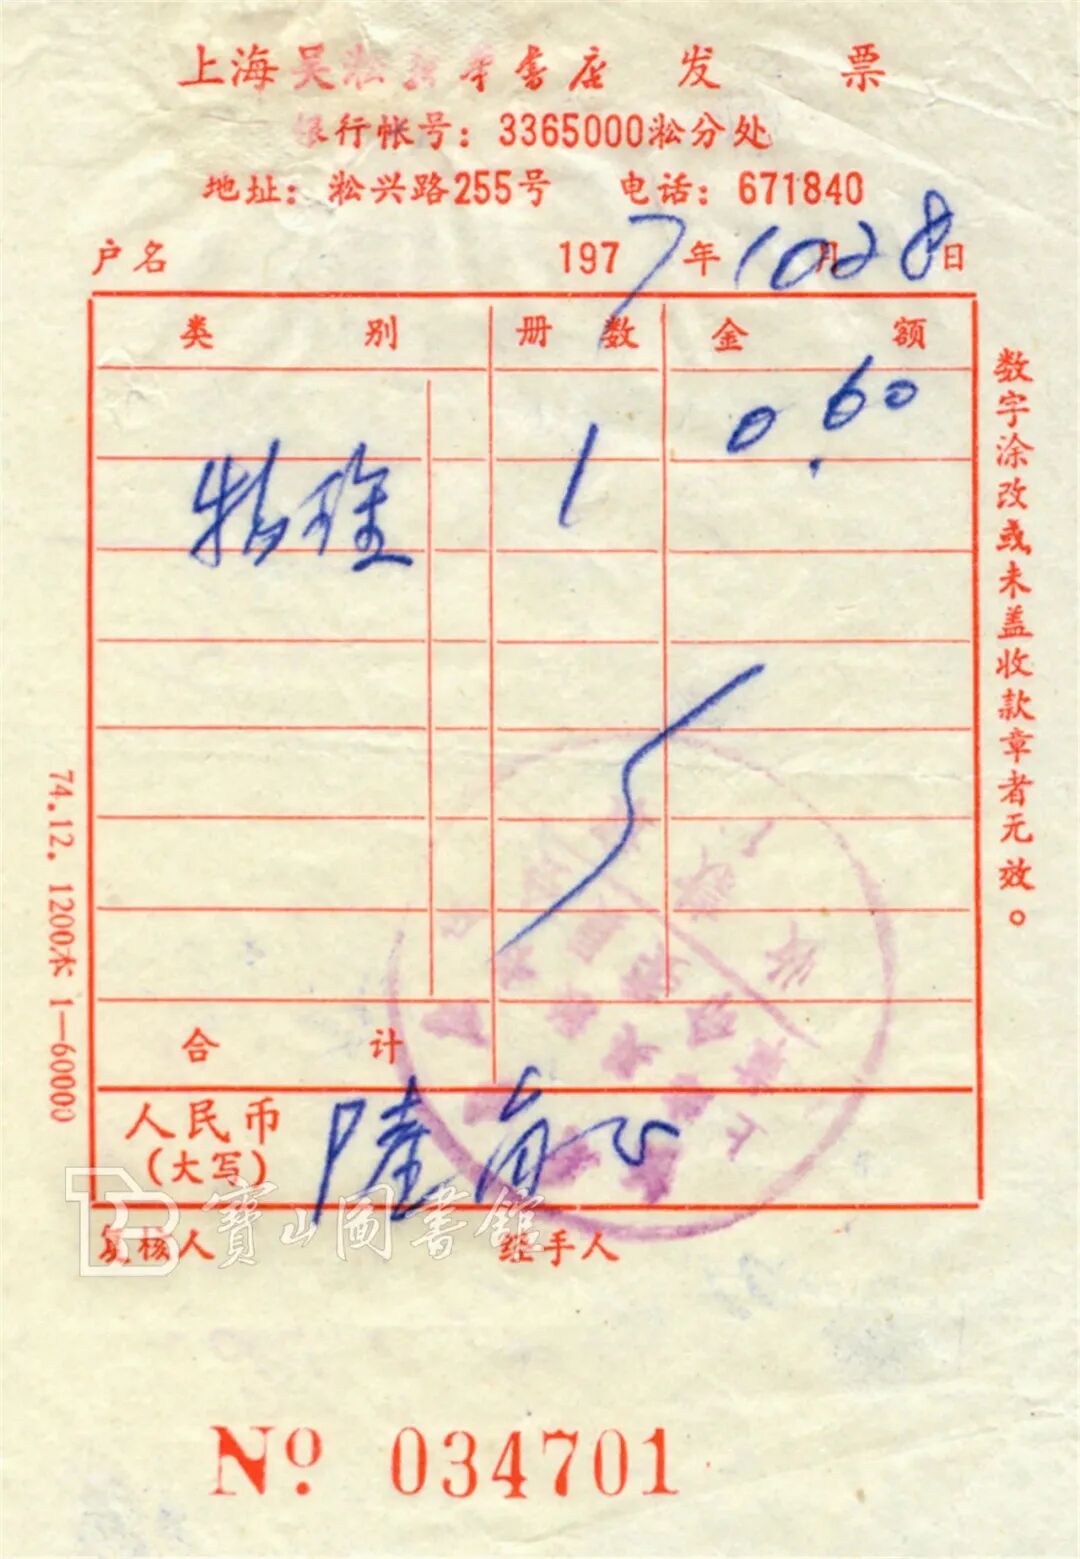 上海吴淞新华书店 发 票
银行帐号：3365000淞分处
地址：淞兴路255号 电话：671840
户名 1977年10月28日
类 别 册 数 金 额
物理 1 0.60
合 计
人民币
(大写)
陆角正
复核人 经手人
数字涂改或未盖收款章者无效。
74.12. 1200本 1—60000
寶山圖書館
№ 034701